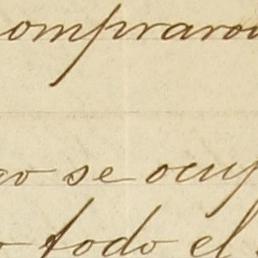 ompraro
go se ocup
o todo el